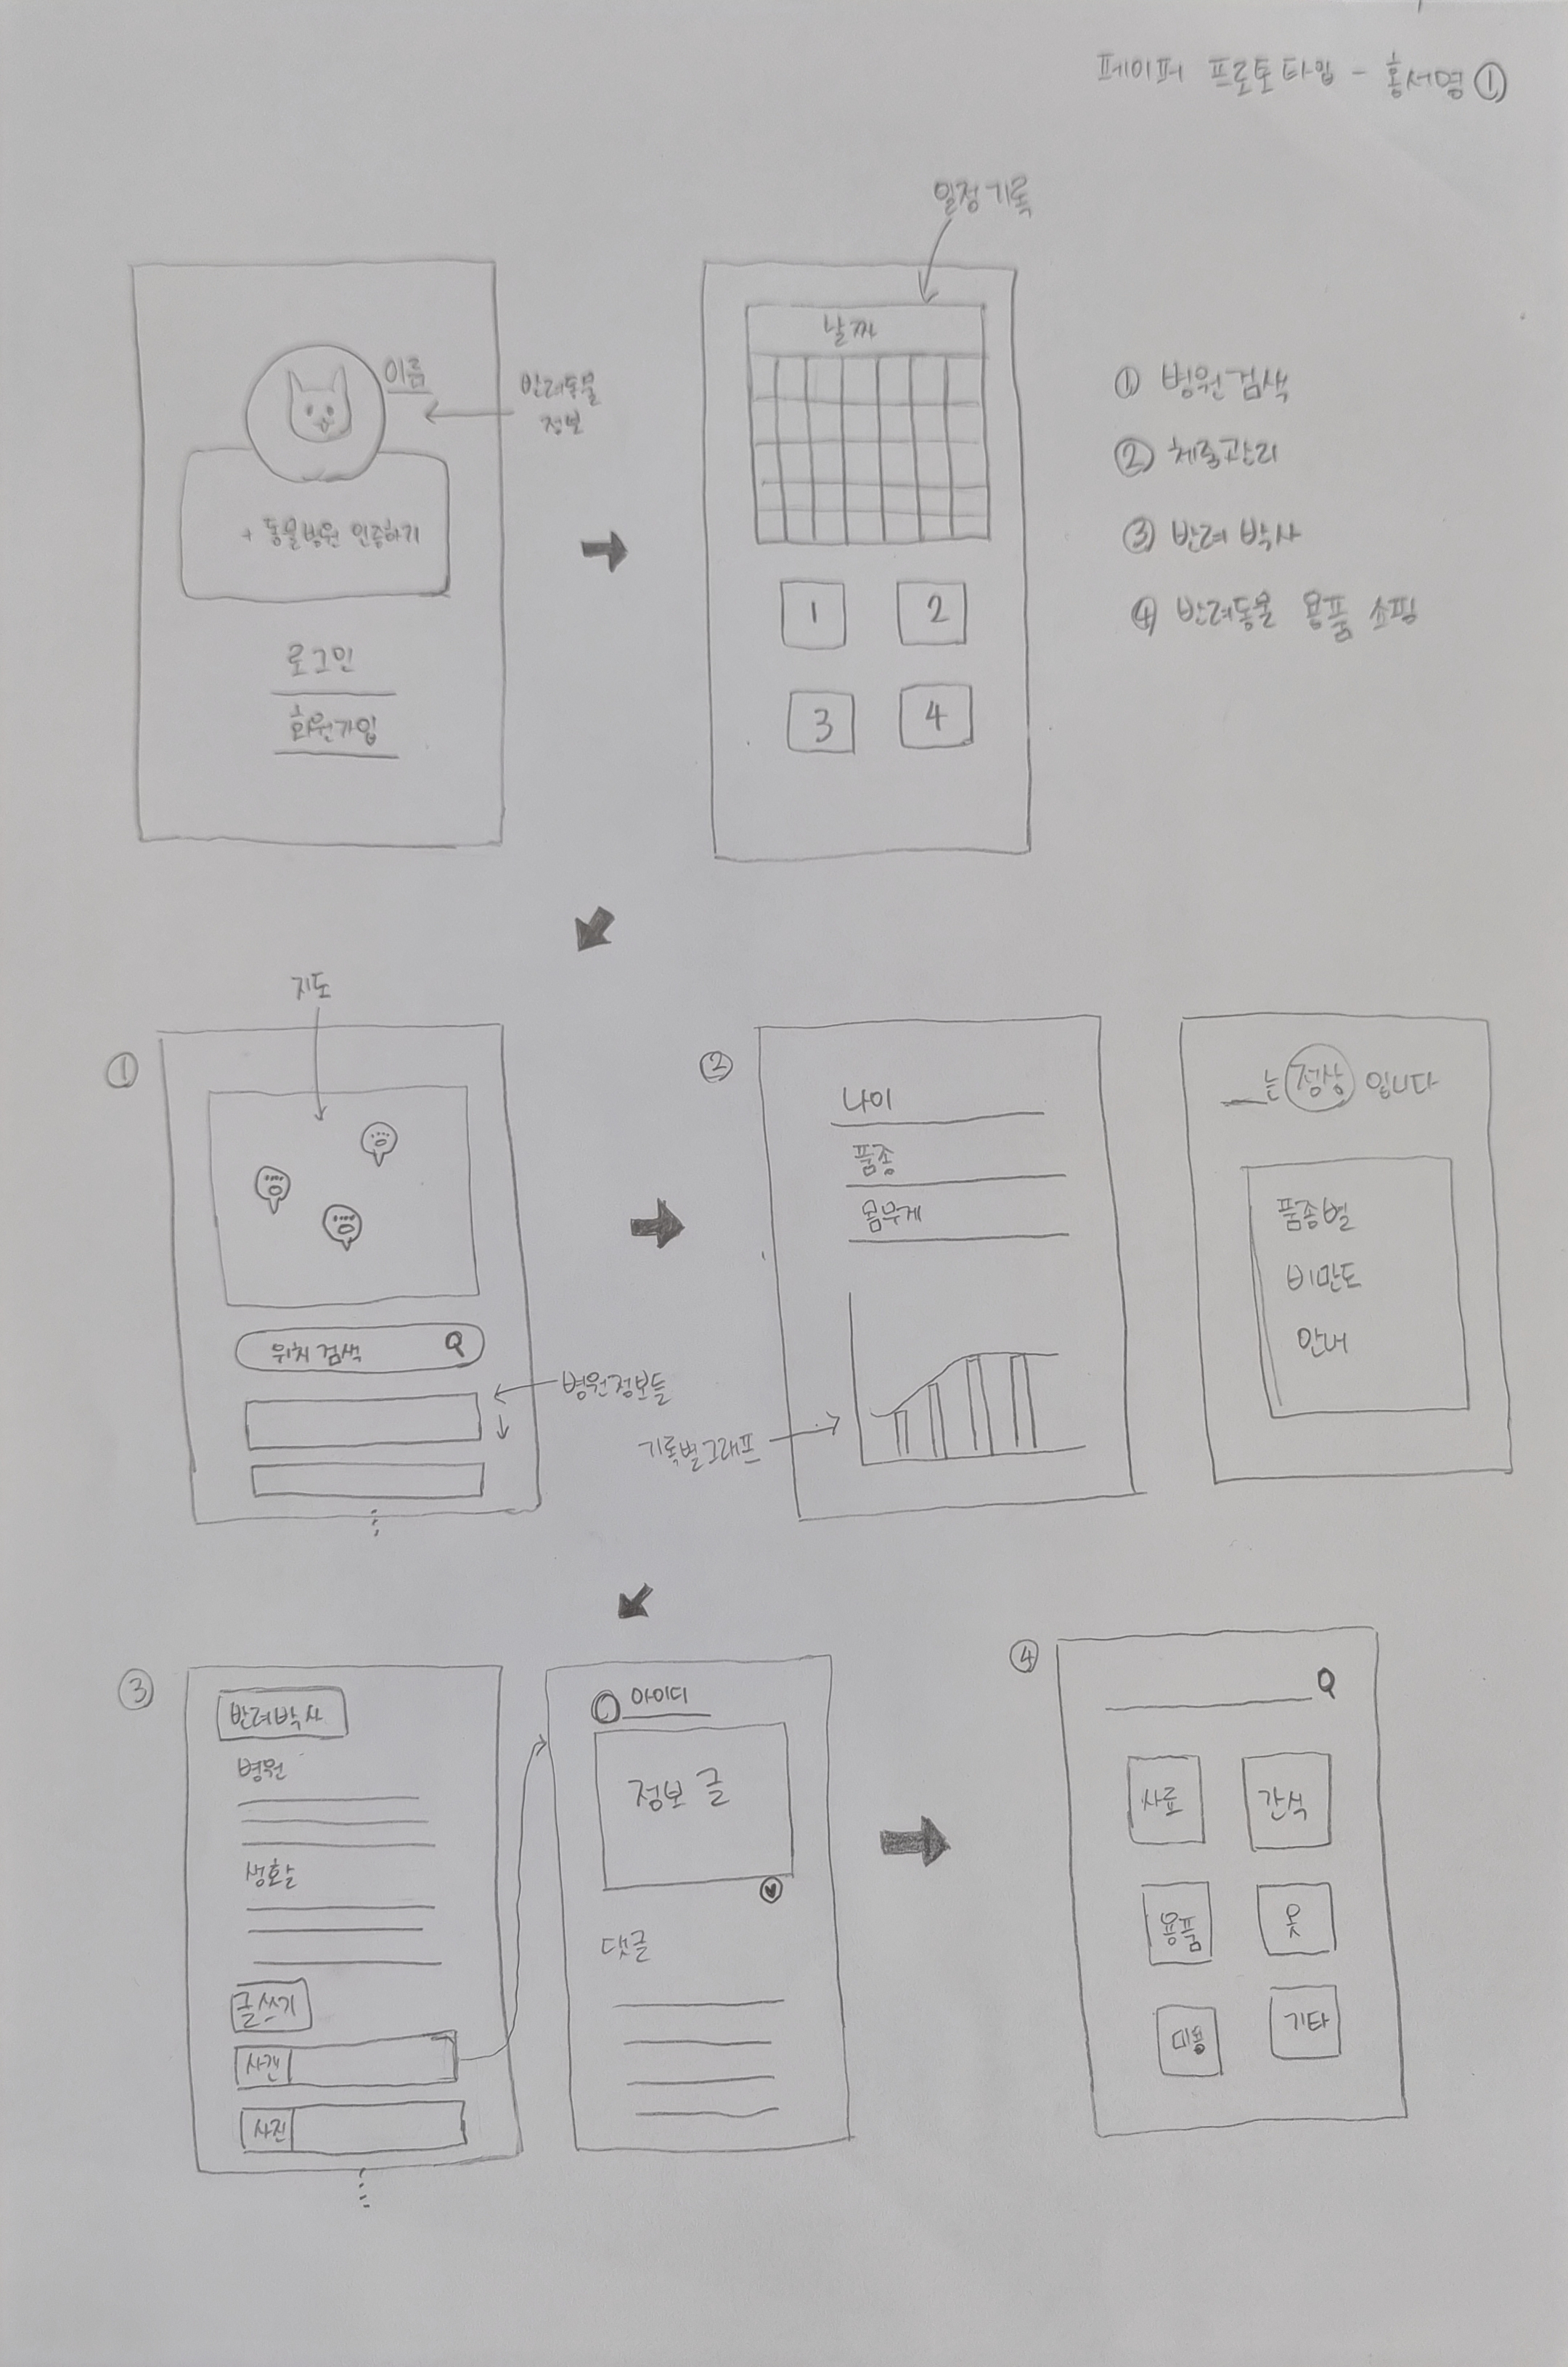 페이퍼 프로토타입 - 홍서명 ①
일정 기록
이름
반려동물
정보
+ 동물병원 인증하기
로그인
회원가입
날짜
1
2
3
4
① 병원검색
② 체중관리
③ 반려 박사
④ 반려동물 용품 쇼핑
지도
①
위치 검색
병원정보들
②
나이
품종
몸무게
기록별그래프
__는 정상 입니다
품종별
비만도
안내
③
반려박사
병원
생활
글쓰기
사진
사진
아이디
정보 글
댓글
④
사료
간식
용품
옷
미용
기타